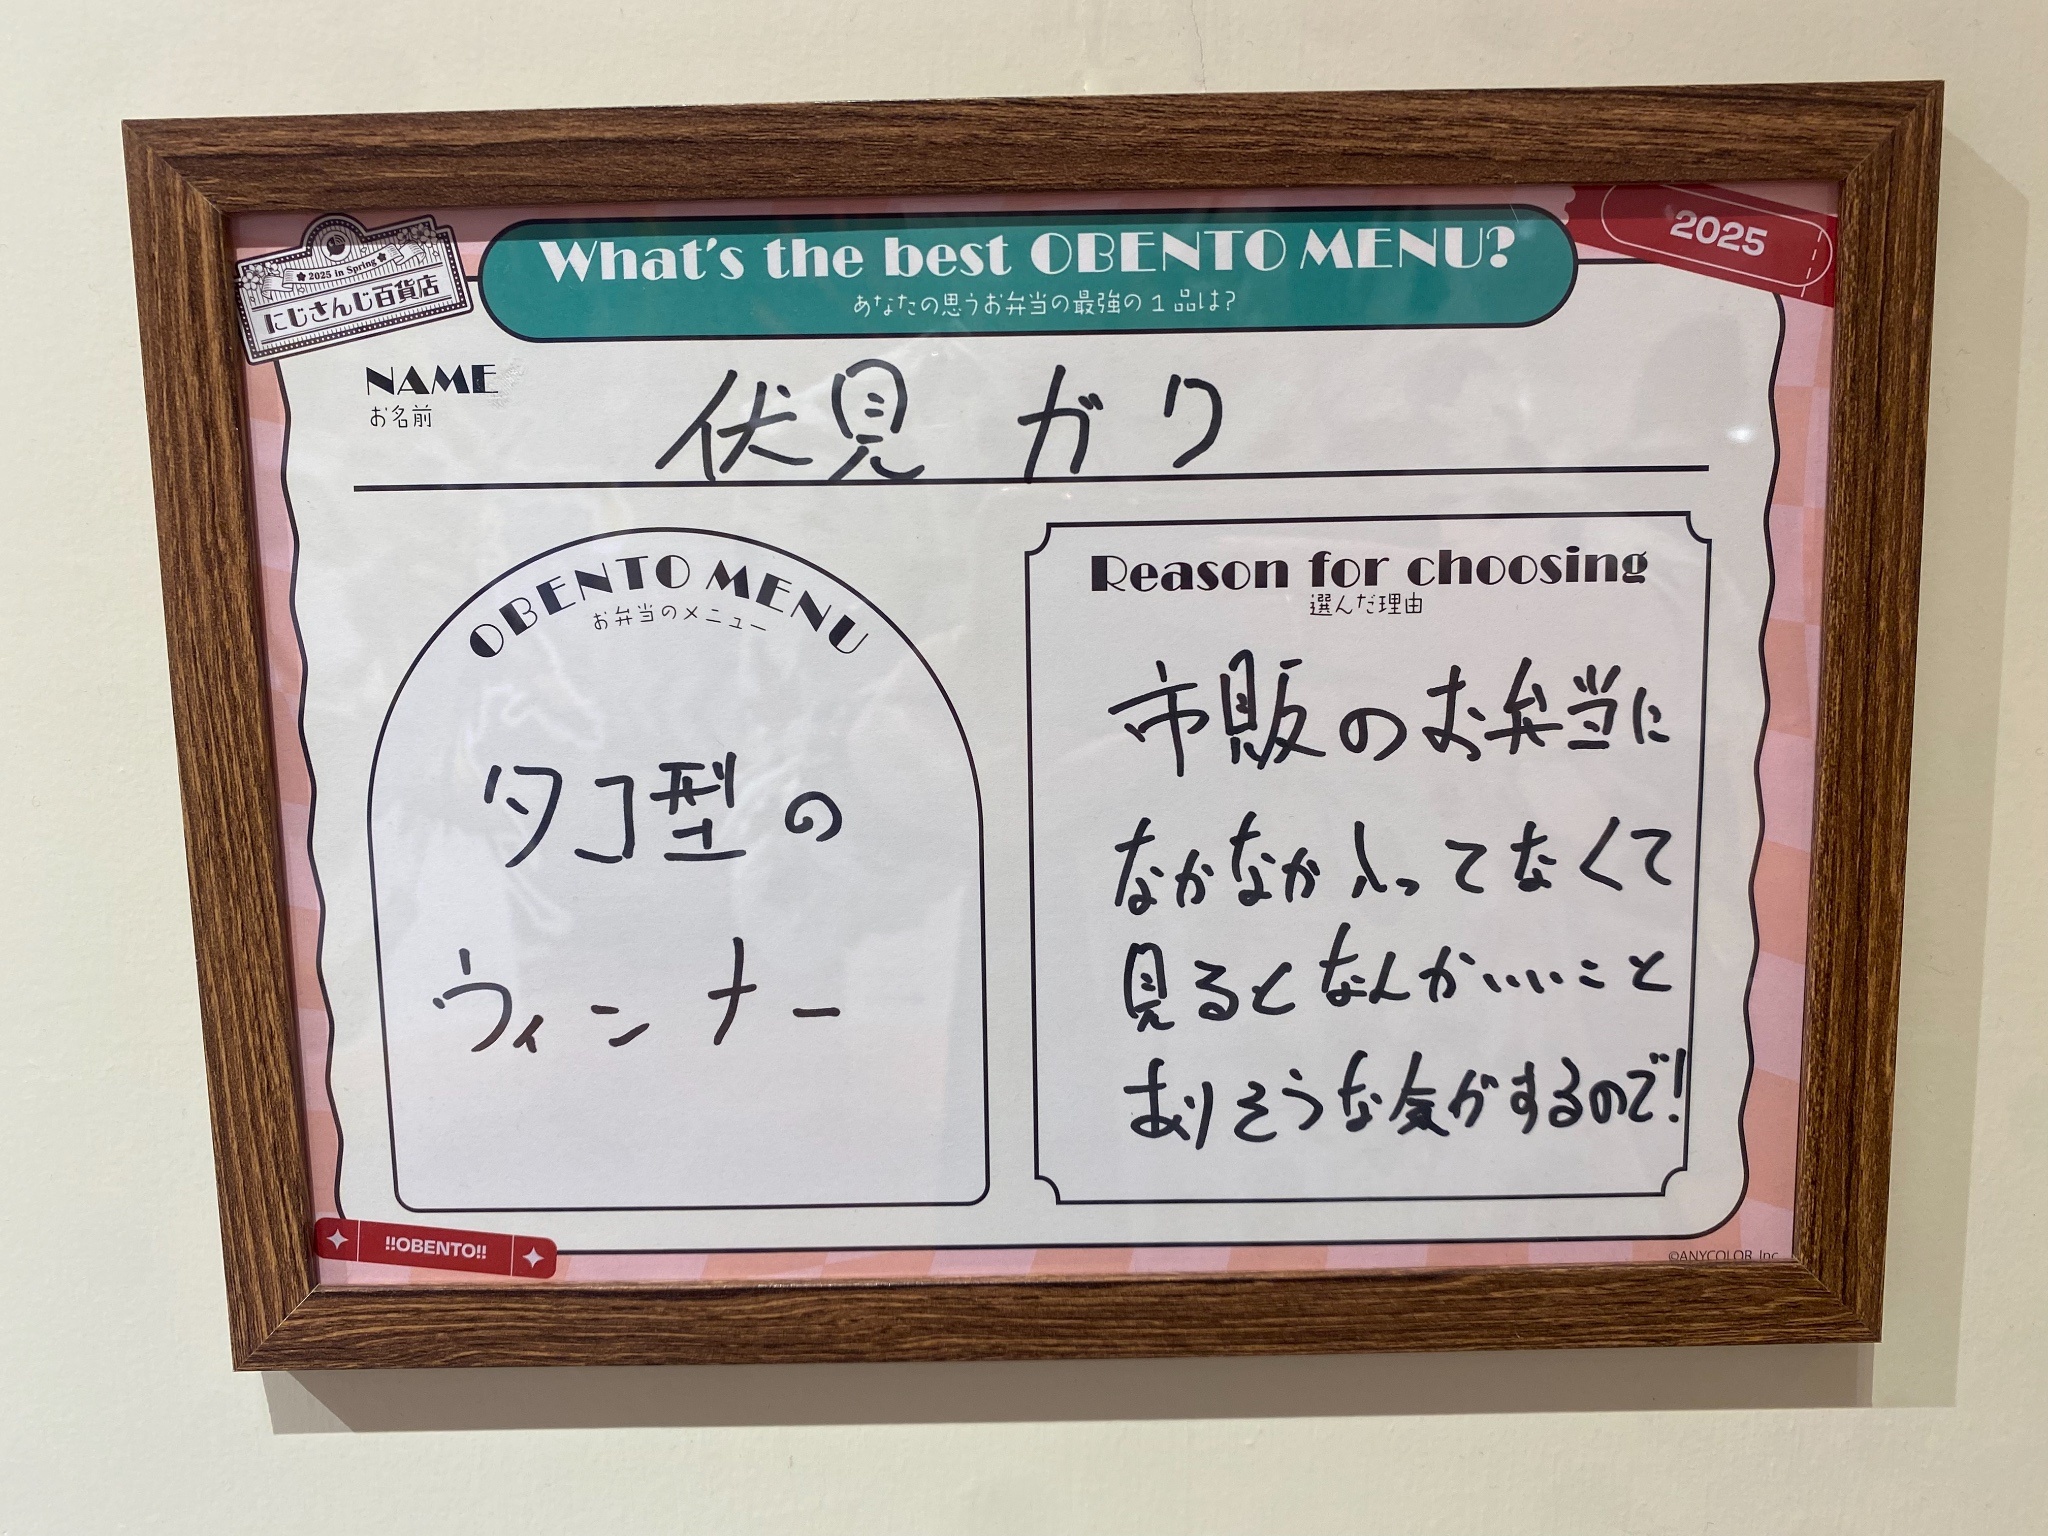 2025 in Spring
にじさんじ百貨店
What's the best OBENTO MENU?
あなたの思うお弁当の最強の1品は?
2025
NAME
お名前
伏見 ガク
OBENTO MENU
お弁当のメニュー
タコ型の
ウィンナー
Reason for choosing
選んだ理由
市販のお弁当に
なかなか入ってなくて
見るとなんかいいこと
ありそうな気がするので!
!!OBENTO!!
©ANYCOLOR, Inc.